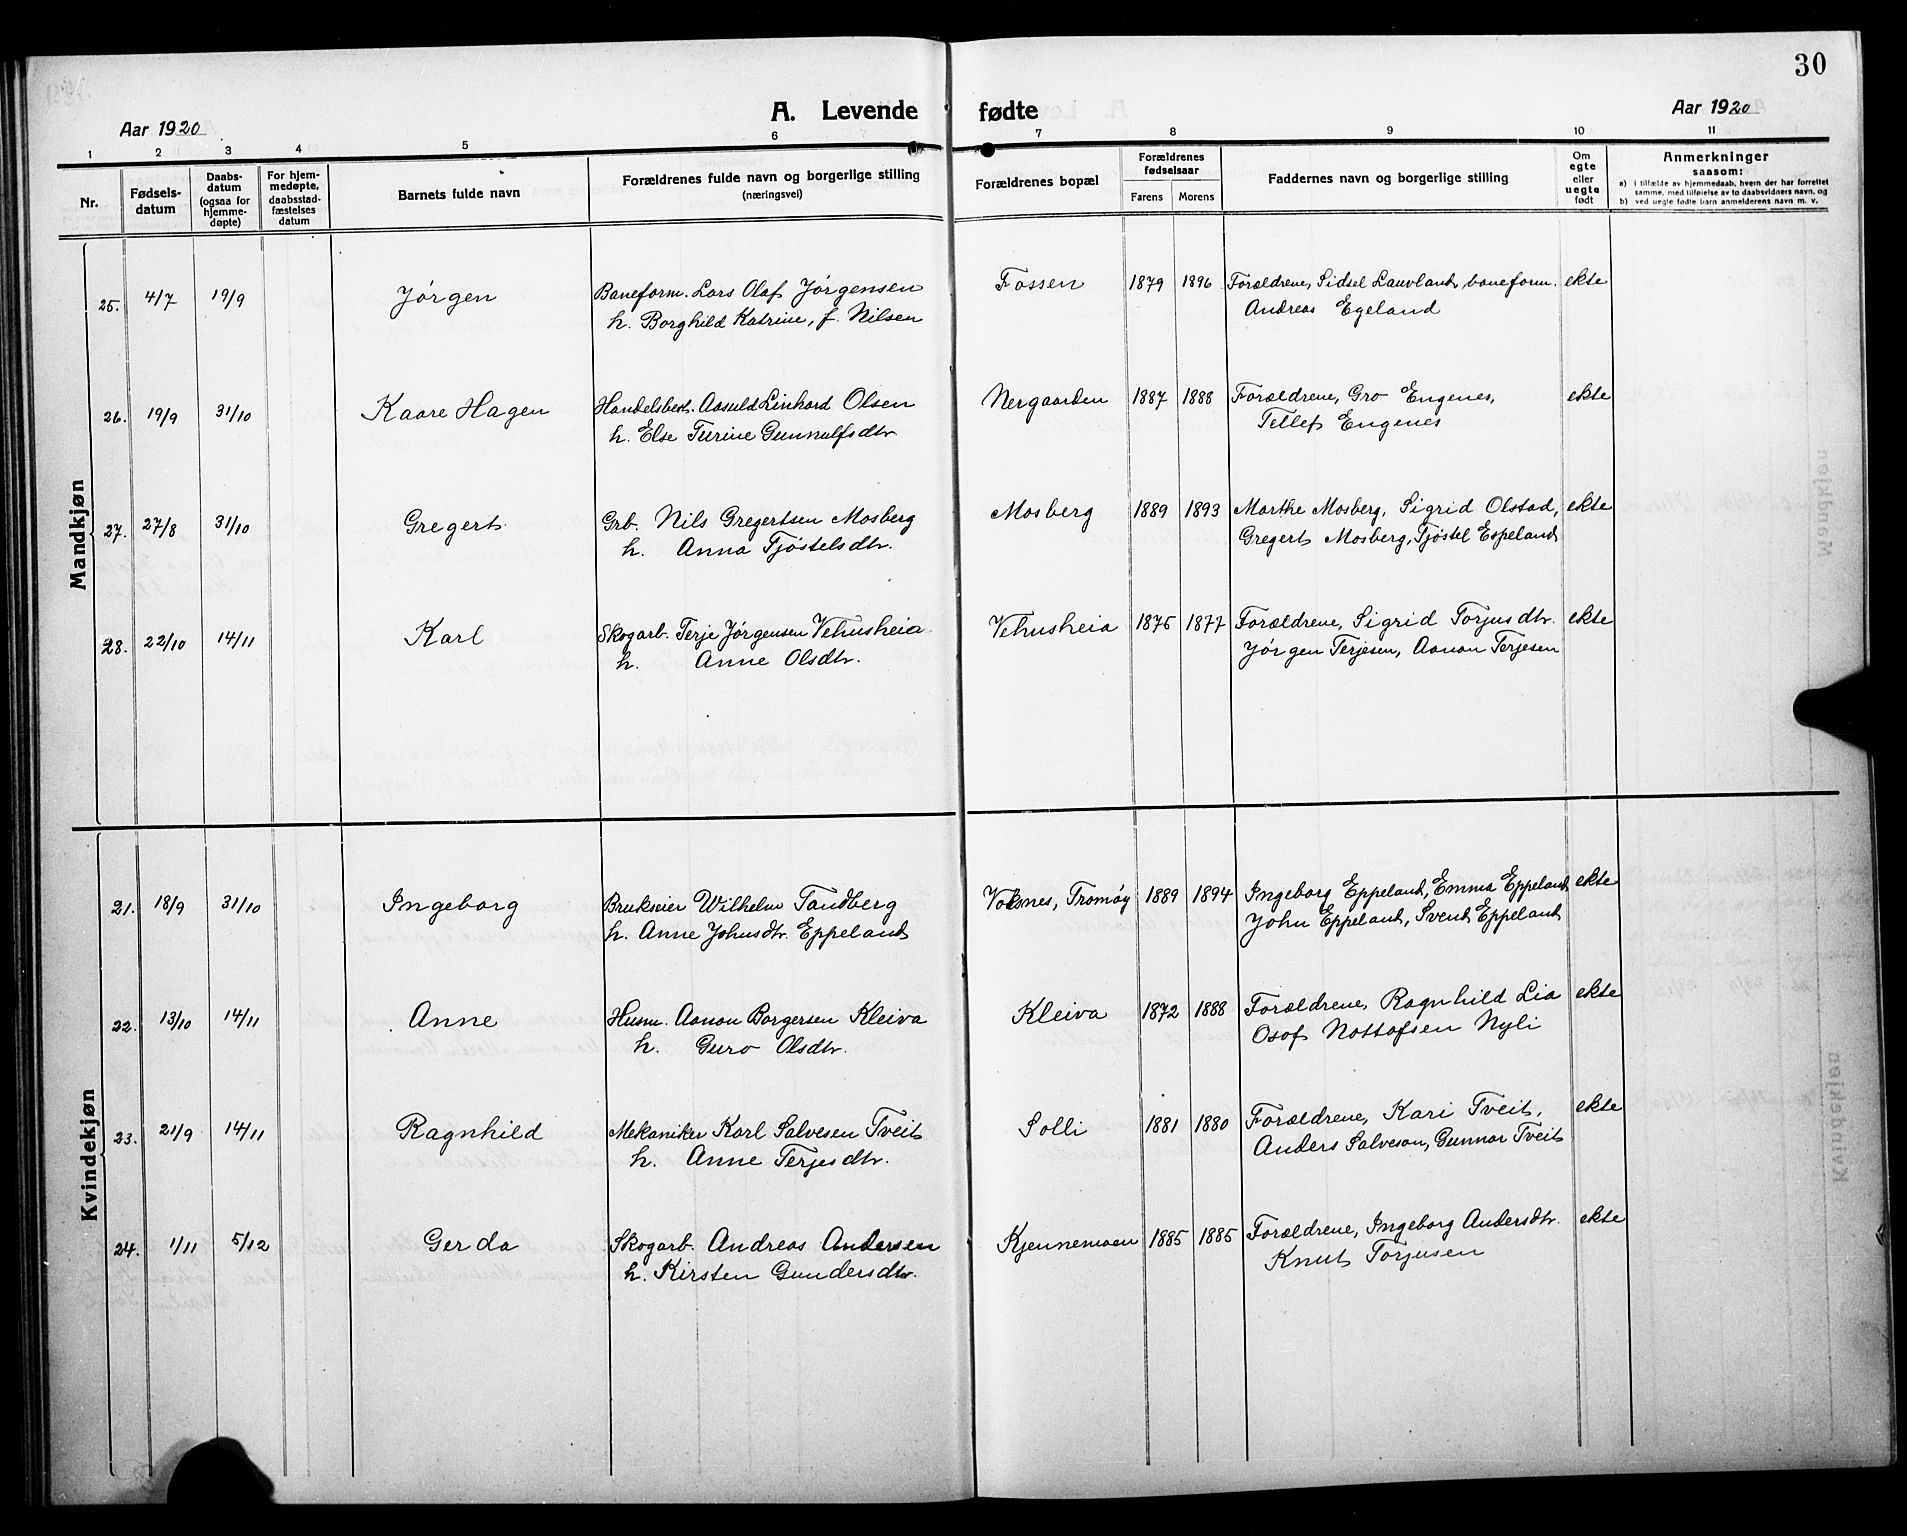 30
A. Levende fødte
Aar 1920
Aar 1920
1 2 3 4 5 6 7 8 9 10 11
Nr.
Fødsels-
datum
Daabs-
datum
(ogsaa for
hjemme-
døpte)
For hjem-
medøpte,
daabsstad-
fæstelses
datum
Barnets fulde navn
Forældrenes fulde navn og borgerlige stilling
(næringsvei)
Forældrenes bopæl
Forældrenes
fødselsaar
Farens Morens
Faddernes navn og borgerlige stilling
Om
egte
eller
uegte
født
Anmerkninger
saasom:
a) i tilfælde av hjemmedaab, hvem der har forrettet
samme, med tilføielse av to daabsvidners navn, og
b) ved uegte fødte barn anmelderens navn m. v.
Mandkjøn
25. 4/7 19/9 Jørgen Baneform. Lars Olaf Jørgensen Fossen 1879 1896 Forældrene, Sidsel Lauvland, baneform. ekte
h. Borghild Katrine, f. Nilsen Andreas Egeland
26. 19/9 31/10 Kaare Hagen Handelsbest. Aasuld Linhard Olsen Nergaarden 1887 1888 Forældrene, Gro Engenes, ekte
h. Else Turine Gunnulfsdtr. Tellef Engenes
27. 27/8 31/10 Gregert Grb. Nils Gregertsen Mosberg Mosberg 1889 1893 Marthe Mosberg, Sigrid Olstad, ekte
h. Anna Tjøstelsdtr. Gregert Mosberg, Tjøstel Espeland
28. 22/10 14/11 Karl Skogarb. Terje Jørgensen Vehusheia Vehusheia 1875 1877 Forældrene, Sigrid Torjusdtr. ekte
h. Anne Olsdtr. Jørgen Terjesen, Aanon Terjesen
Kvindekjøn
21. 18/9 31/10 Ingeborg Brukseier Wilhelm Tandberg Voksnes, Tromøy 1889 1894 Ingeborg Eppeland, Emma Eppeland ekte
h. Anne Johnsdtr. Eppeland John Eppeland, Svend Eppeland
22. 13/10 14/11 Anne Husm. Aanon Borgersen Kleiva Kleiva 1872 1888 Forældrene, Ragnhild Lia ekte
h. Guro Olsdtr. Osof Nottofsen Nyli
23. 21/9 14/11 Ragnhild Mekaniker Karl Salvesen Tveit Solli 1881 1880 Forældrene, Kari Tveit, ekte
h. Anne Terjesdtr. Anders Salveson, Gunnar Tveit
24. 1/11 5/12 Gerda Skogarb. Andreas Andersen Kjennemoen 1885 1885 Forældrene, Ingeborg Andersdtr. ekte
h. Kirsten Gundersdtr. Knut Torjusen